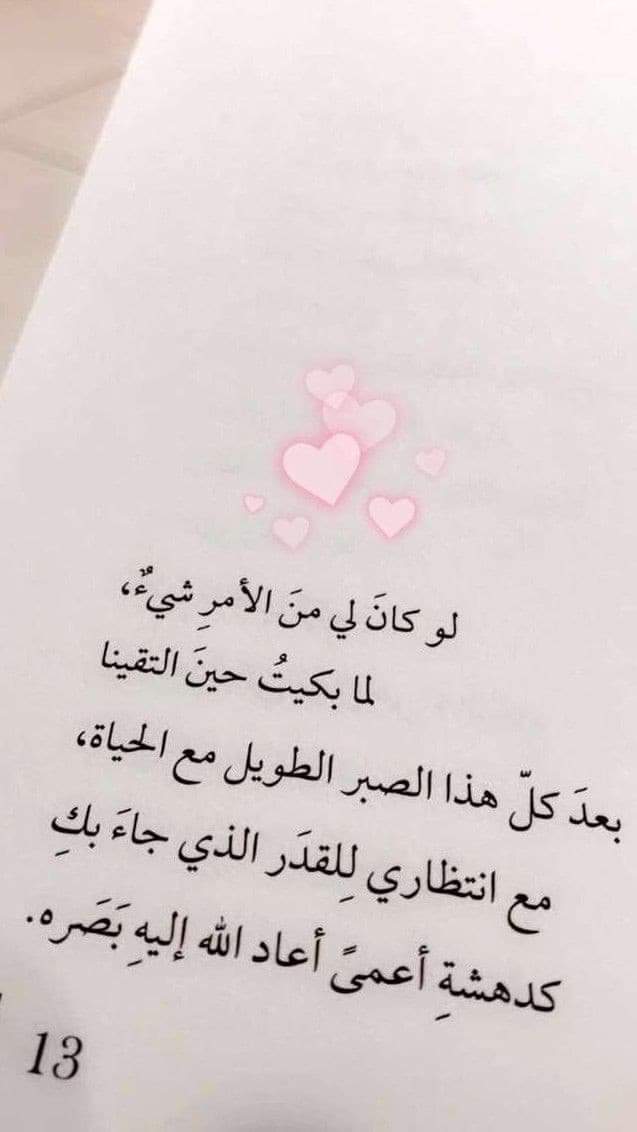 لو كانَ لي منَ الأمرِ شيءٌ،
لما بكيتُ حينَ التقينا
بعدَ كلّ هذا الصبر الطويل مع الحياة،
مع انتظاري لِلقدَر الذي جاءَ بكِ
كدهشةِ أعمىً أعاد الله إليهِ بَصَره.
13